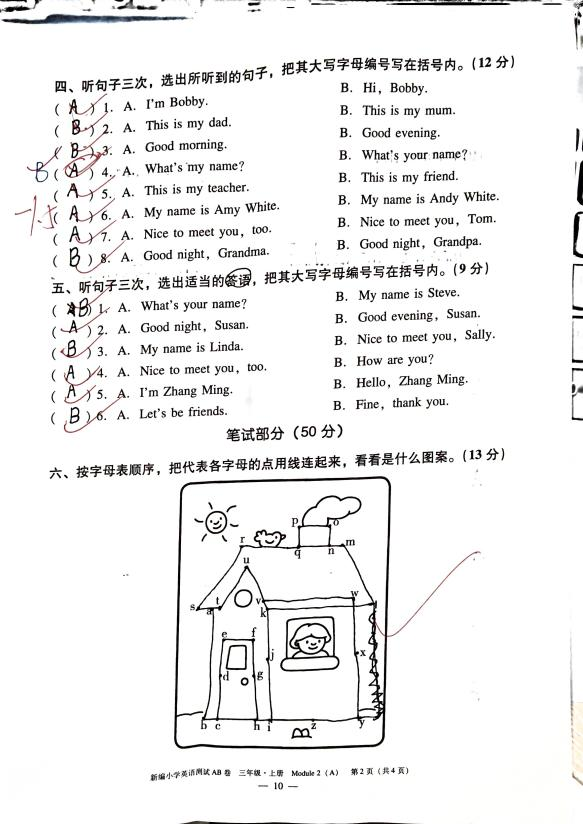 四、听句子三次，选出所听到的句子，把其大写字母编号写在括号内。(12 分)
( A ) 1. A. I'm Bobby. B. Hi, Bobby.
( B ) 2. A. This is my dad. B. This is my mum.
( B ) 3. A. Good morning. B. Good evening.
B ( A ) 4. A. What's my name? B. What's your name?
( A ) 5. A. This is my teacher. B. This is my friend.
( A ) 6. A. My name is Amy White. B. My name is Andy White.
( A ) 7. A. Nice to meet you, too. B. Nice to meet you, Tom.
( B ) 8. A. Good night, Grandma. B. Good night, Grandpa.
五、听句子三次，选出适当的答语，把其大写字母编号写在括号内。(9 分)
( B ) 1. A. What's your name? B. My name is Steve.
( A ) 2. A. Good night, Susan. B. Good evening, Susan.
( B ) 3. A. My name is Linda. B. Nice to meet you, Sally.
( A ) 4. A. Nice to meet you, too. B. How are you?
( A ) 5. A. I'm Zhang Ming. B. Hello, Zhang Ming.
( B ) 6. A. Let's be friends. B. Fine, thank you.
笔试部分 (50 分)
六、按字母表顺序，把代表各字母的点用线连起来，看看是什么图案。(13 分)
p o
r q n m
u
s a t v k w
e f
j x
d g
b c h i z y
新编小学英语测试 AB 卷 三年级·上册 Module 2 (A) 第 2 页 (共 4 页)
— 10 —